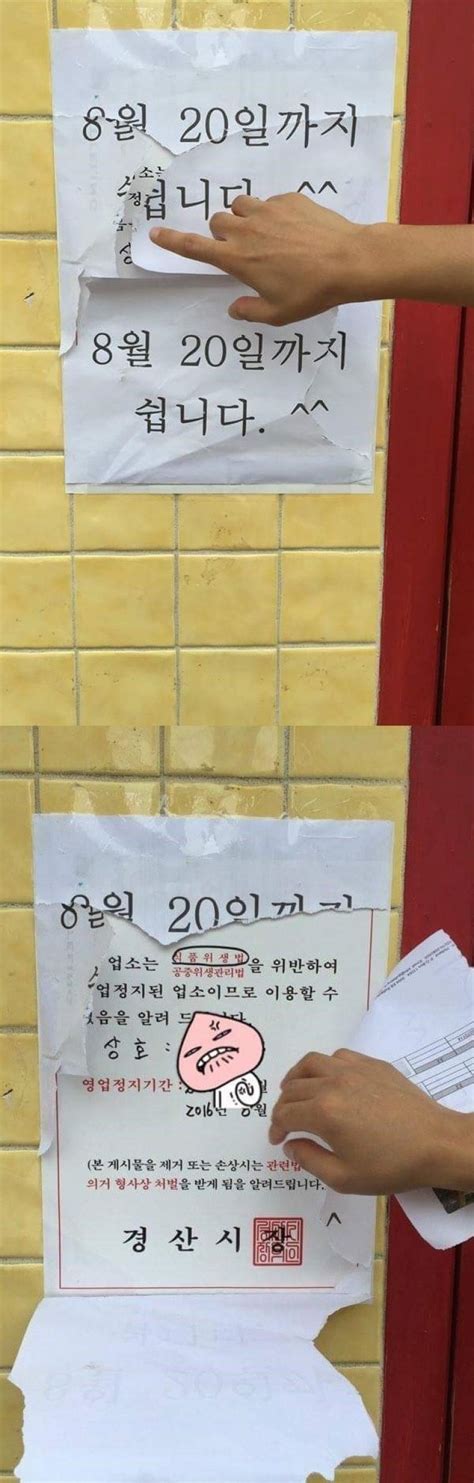 8월 20일까지
쉽니다. ^^
8월 20일까지
쉽니다. ^^
8월 20일까지
업소는 식품위생법
공중위생관리법을 위반하여
업정지된 업소이므로 이용할 수
음을 알려 드
상호 :
영업정지기간 :
2016년 8월
(본 게시물을 제거 또는 손상시는 관련법
의거 형사상 처벌을 받게 됨을 알려드립니다.
경산시장
^